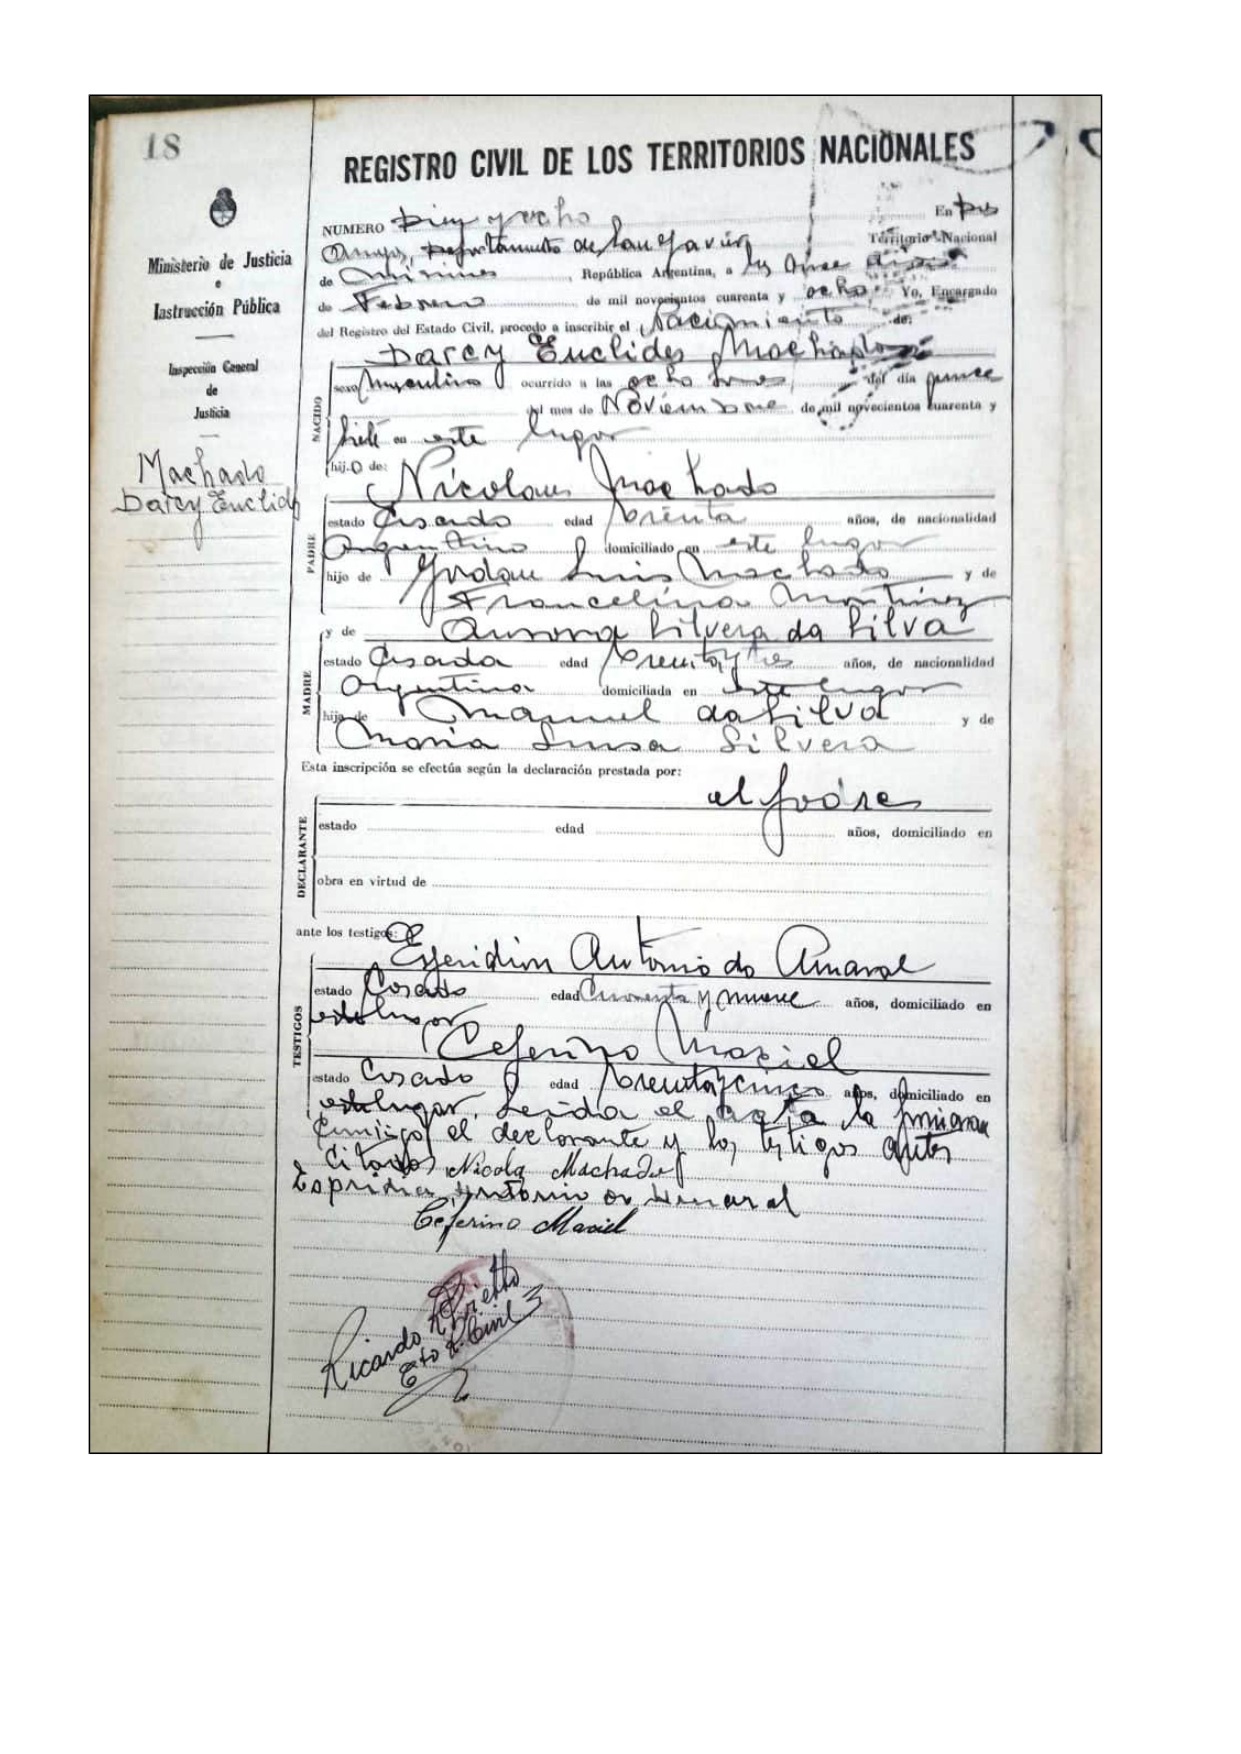 18
REGISTRO CIVIL DE LOS TERRITORIOS NACIONALES
Ministerio de Justicia
e
Instrucción Pública
Inspección General
de
Justicia
Machado
Darcy Euclid
NUMERO Diez y ocho En Dos
Arroyos, Departamento de San Javier Territorio Nacional
de Misiones, República Argentina, a los once
de Febrero de mil novecientos cuarenta y ocho Yo, Encargado
del Registro del Estado Civil, procedo a inscribir el Nacimiento de:
Darcy Euclides Machado
NACIDO
sexo Masculino ocurrido a las ocho horas, del día quince
del mes de Noviembre de mil novecientos cuarenta y
siete en este lugar
hijo de:
Nicolau Machado
PADRE
estado Casado edad treinta años, de nacionalidad
Argentino domiciliado en este lugar
hijo de Jordau Luis Machado y de
Francelina Martinez
y de Aurora Silvera da Silva
MADRE
estado Casada edad treinta y tres años, de nacionalidad
Argentina domiciliada en este lugar
hija de Manuel da Silva y de
Maria Luisa Silvera
Esta inscripción se efectúa según la declaración prestada por:
el padre
DECLARANTE
estado edad años, domiciliado en
obra en virtud de
ante los testigos:
Esperidion Antonio do Amaral
TESTIGOS
estado Casado edad Cuarenta y nueve años, domiciliado en
este lugar
Ceferino Maciel
estado Casado edad treinta y cinco años, domiciliado en
este lugar. Leida el acta la firman
conmigo el declarante y los testigos antes
citados Nicola Machado
Antonio Amaral
Ceferino Maciel
Ricardo Prietto
Edo R. Civil